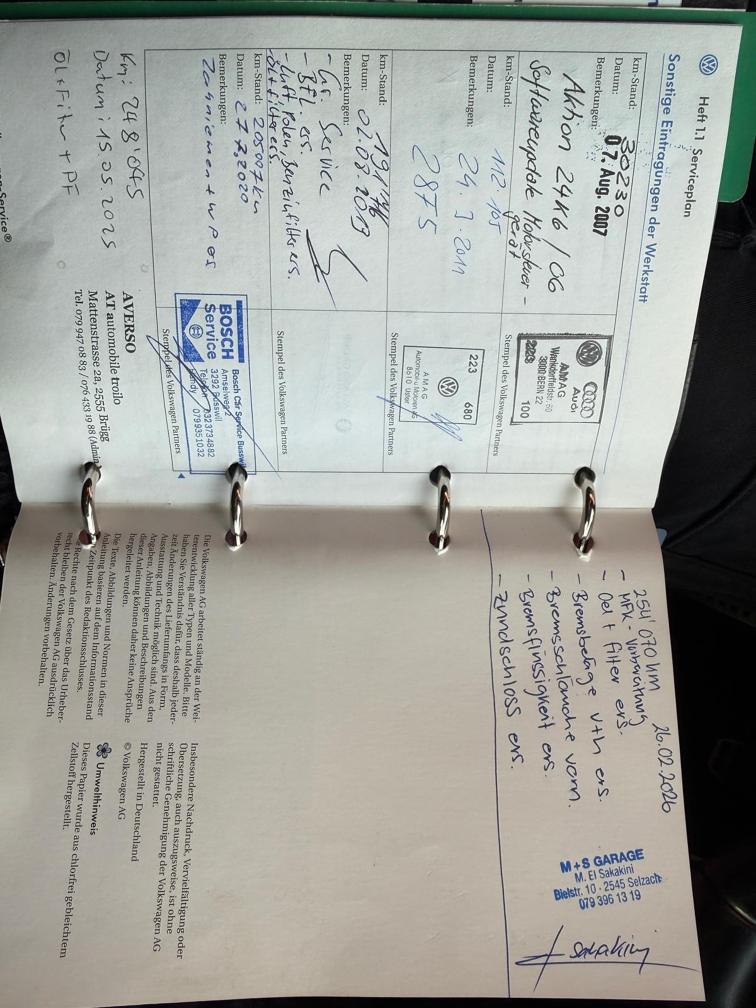 Heft 1.1 Serviceplan
Sonstige Eintragungen der Werkstatt
km-Stand: 30230
Datum: 07. Aug. 2007
Bemerkungen:
Aktion 24K6 / 06
Softwareupdate Motorsteuer-
gerät
Audi
AMAG
Wankdorffeldstr. 60
3000 BERN 22
2223 100
Stempel des Volkswagen Partners
km-Stand: 112 105
Datum: 24. 3. 2011
Bemerkungen: 2875
223 680
AMAG
Automobil- u. Motoren AG
8610 Uster
Stempel des Volkswagen Partners
km-Stand:
Datum: 02.08.2013
Bemerkungen:
- Gr. Service
- BFL ers.
- Luft, Polen, Benzinfilter ers.
- Ölfilter ers.
Stempel des Volkswagen Partners
km-Stand: 205007km
Datum: 27.7.2020
Bemerkungen:
Zahnriemen + WP ers
BOSCH
Service
Bosch Car Service Busswil
3292 Busswil
Telefon 0323734882
Handy 0799351032
Stempel des Volkswagen Partners
Km: 248'045
Datum: 15.05.2025
Öl + Filter + PF
AVERSO
AT automobile troilo
Mattenstrasse 28a, 2555 Brügg
Tel. 079 947 08 83 / 076 433 19 88 (Admin
254'070 km 26.02.2026
- MFK-Vorbereitung
- Oel + Filter ers.
- Bremsbeläge v+h ers.
- Bremsschläuche vorn.
- Bremsflüssigkeit ers.
- Zündschloss ers.
M+S GARAGE
M. El Sakakini
Bielstr. 10 · 2545 Selzach
079 396 13 19
Sakakini
Die Volkswagen AG arbeitet ständig an der Wei-
terentwicklung aller Typen und Modelle. Bitte
haben Sie Verständnis dafür, dass deshalb jeder-
zeit Änderungen des Lieferumfangs in Form,
Ausstattung und Technik möglich sind. Aus den
Angaben, Abbildungen und Beschreibungen
dieser Anleitung können daher keine Ansprüche
hergeleitet werden.
Die Texte, Abbildungen und Normen in dieser
Anleitung basieren auf dem Informationsstand
Zeitpunkt des Redaktionsschlusses.
Rechte nach dem Gesetz über das Urheber-
recht bleiben der Volkswagen AG ausdrücklich
vorbehalten. Änderungen vorbehalten.
Insbesondere Nachdruck, Vervielfältigung oder
Übersetzung, auch auszugsweise, ist ohne
schriftliche Genehmigung der Volkswagen AG
nicht gestattet.
Hergestellt in Deutschland
© Volkswagen AG
Umwelthinweis
Dieses Papier wurde aus chlorfrei gebleichtem
Zellstoff hergestellt.